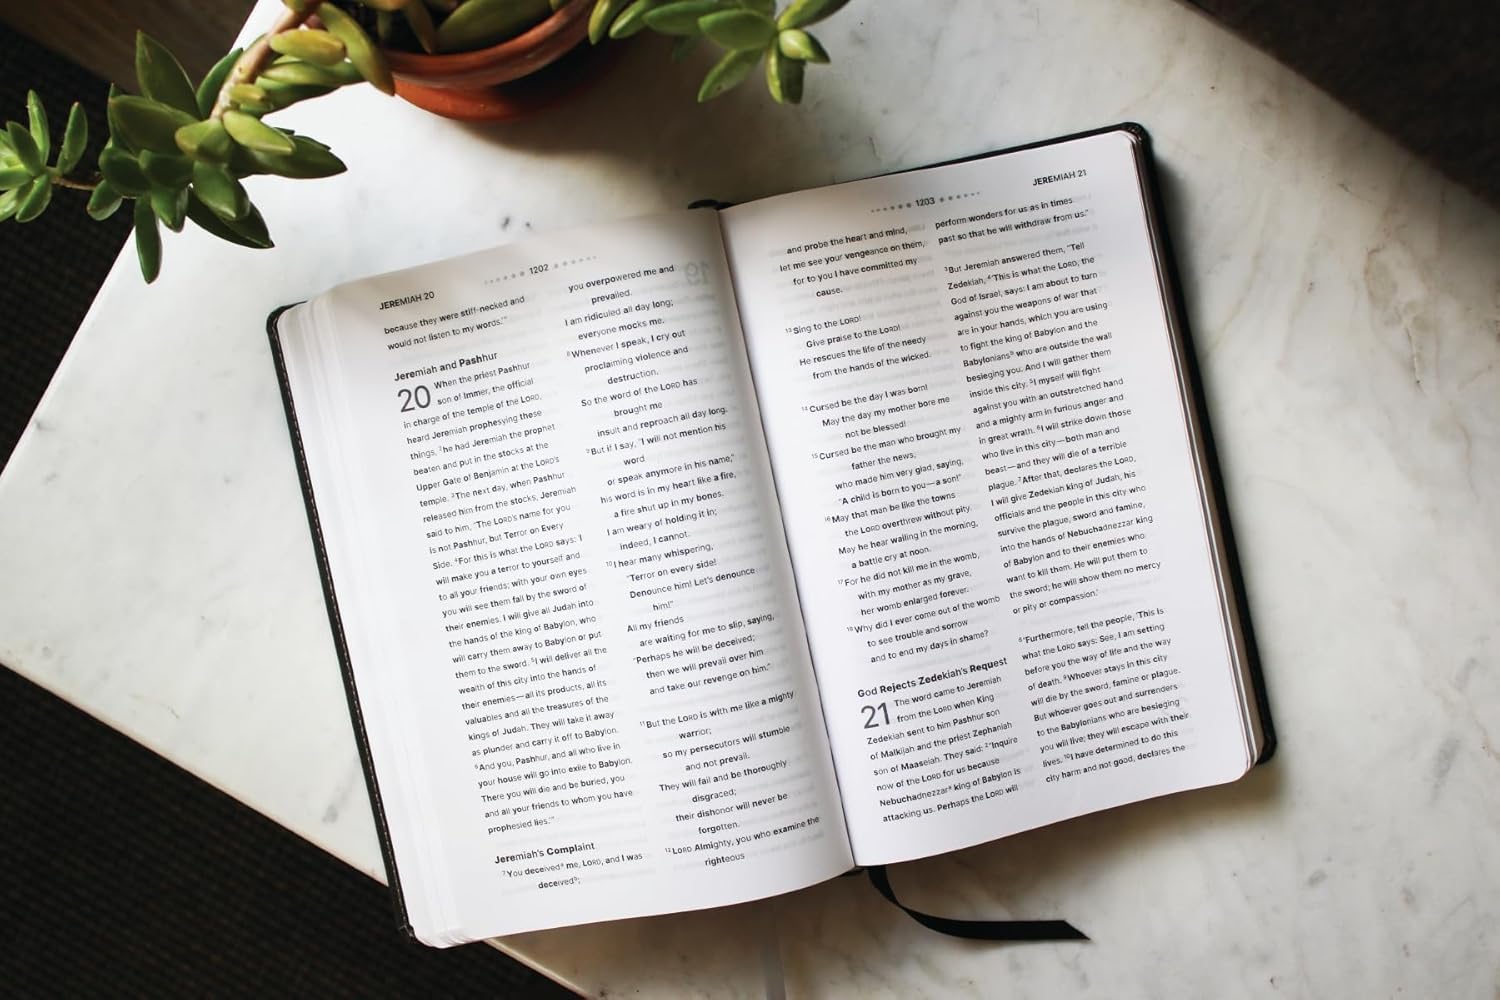 JEREMIAH 20
1202
because they were stiff-necked and
would not listen to my words.’”
Jeremiah and Pashhur
20 When the priest Pashhur
son of Immer, the official
in charge of the temple of the LORD,
heard Jeremiah prophesying these
things, 2he had Jeremiah the prophet
beaten and put in the stocks at the
Upper Gate of Benjamin at the LORD’s
temple. 3The next day, when Pashhur
released him from the stocks, Jeremiah
said to him, “The LORD’s name for you
is not Pashhur, but Terror on Every
Side. 4For this is what the LORD says: ‘I
will make you a terror to yourself and
to all your friends; with your own eyes
you will see them fall by the sword of
their enemies. I will give all Judah into
the hands of the king of Babylon, who
will carry them away to Babylon or put
them to the sword. 5I will deliver all the
wealth of this city into the hands of
their enemies—all its products, all its
valuables and all the treasures of the
kings of Judah. They will take it away
as plunder and carry it off to Babylon.
6And you, Pashhur, and all who live in
your house will go into exile to Babylon.
There you will die and be buried, you
and all your friends to whom you have
prophesied lies.’”
Jeremiah’s Complaint
7You deceiveda me, LORD, and I was
deceiveda;
you overpowered me and
prevailed.
I am ridiculed all day long;
everyone mocks me.
8Whenever I speak, I cry out
proclaiming violence and
destruction.
So the word of the LORD has
brought me
insult and reproach all day long.
9But if I say, “I will not mention his
word
or speak anymore in his name,”
his word is in my heart like a fire,
a fire shut up in my bones.
I am weary of holding it in;
indeed, I cannot.
10I hear many whispering,
“Terror on every side!
Denounce him! Let’s denounce
him!”
All my friends
are waiting for me to slip, saying,
“Perhaps he will be deceived;
then we will prevail over him
and take our revenge on him.”
11But the LORD is with me like a mighty
warrior;
so my persecutors will stumble
and not prevail.
They will fail and be thoroughly
disgraced;
their dishonor will never be
forgotten.
12LORD Almighty, you who examine the
righteous
1203
JEREMIAH 21
and probe the heart and mind,
let me see your vengeance on them,
for to you I have committed my
cause.
13Sing to the LORD!
Give praise to the LORD!
He rescues the life of the needy
from the hands of the wicked.
14Cursed be the day I was born!
May the day my mother bore me
not be blessed!
15Cursed be the man who brought my
father the news,
who made him very glad, saying,
“A child is born to you—a son!”
16May that man be like the towns
the LORD overthrew without pity.
May he hear wailing in the morning,
a battle cry at noon.
17For he did not kill me in the womb,
with my mother as my grave,
her womb enlarged forever.
18Why did I ever come out of the womb
to see trouble and sorrow
and to end my days in shame?
God Rejects Zedekiah’s Request
21 The word came to Jeremiah
from the LORD when King
Zedekiah sent to him Pashhur son
of Malkijah and the priest Zephaniah
son of Maaseiah. They said: 2“Inquire
now of the LORD for us because
Nebuchadnezzara king of Babylon is
attacking us. Perhaps the LORD will
perform wonders for us as in times
past so that he will withdraw from us.”
3But Jeremiah answered them, “Tell
Zedekiah, 4‘This is what the LORD, the
God of Israel, says: I am about to turn
against you the weapons of war that
are in your hands, which you are using
to fight the king of Babylon and the
Babyloniansb who are outside the wall
besieging you. And I will gather them
inside this city. 5I myself will fight
against you with an outstretched hand
and a mighty arm in furious anger and
in great wrath. 6I will strike down those
who live in this city—both man and
beast—and they will die of a terrible
plague. 7After that, declares the LORD,
I will give Zedekiah king of Judah, his
officials and the people in this city who
survive the plague, sword and famine,
into the hands of Nebuchadnezzar king
of Babylon and to their enemies who
want to kill them. He will put them to
the sword; he will show them no mercy
or pity or compassion.’
8“Furthermore, tell the people, ‘This is
what the LORD says: See, I am setting
before you the way of life and the way
of death. 9Whoever stays in this city
will die by the sword, famine or plague.
But whoever goes out and surrenders
to the Babylonians who are besieging
you will live; they will escape with their
lives. 10I have determined to do this
city harm and not good, declares the